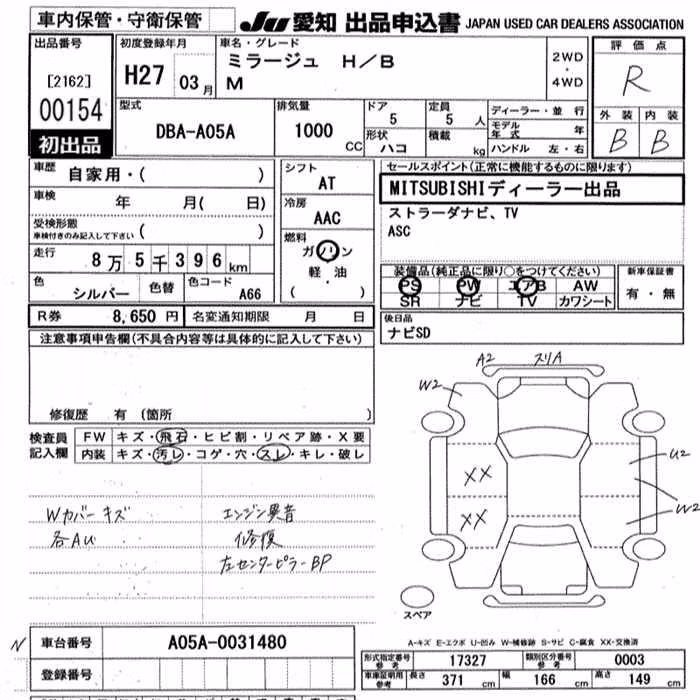 車内保管・守衛保管
JU 愛知 出品申込書 JAPAN USED CAR DEALERS ASSOCIATION
出品番号
[2162]
00154
初出品
初度登録年月
H27 03月
車名・グレード
ミラージュ H/B
M
2WD
・
4WD
評価点
R
外装 内装
B B
型式
DBA-A05A
排気量
1000 CC
ドア
5
定員
5 人
形状
ハコ
積載
kg
ディーラー・並行
モデル年式 年
ハンドル 左・右
車歴
自家用・( )
車検
年 月( 日)
受検形態
車検付きのみ記入して下さい ( )
走行
8万5千396km
色
シルバー
色替
色コード
A66
シフト
AT
冷房
AAC
燃料
ガソリン
・
軽油
( )
R券 8,650円
名変通知期限 月 日
セールスポイント(正常に機能するものに限ります)
MITSUBISHIディーラー出品
ストラーダナビ、TV
ASC
装備品(純正品に限り○をつけてください)
PS PW エアB AW
SR ナビ TV カワシート
新車保証書
有・無
後日品
ナビSD
注意事項申告欄(不具合内容等は具体的に記入して下さい)
修復歴 有(箇所 )
検査員
記入欄
FW キズ・飛石・ヒビ割・リペア跡・X要
内装 キズ・汚レ・コゲ・穴・スレ・キレ・破レ
Wカバーキズ
各AU
エンジン異音
修復
左センターピラーBP
A2 スリA
W2
U2
XX
XX
W2
スペア
A-キズ E-エクボ U-凹み W-補修跡 S-サビ C-腐食 XX-交換済
N
車台番号 A05A-0031480
登録番号
形式指定番号
参考
17327
類別区分番号
参考
0003
車庫証明用
参考
長さ 371 cm
幅 166 cm
高さ 149 cm